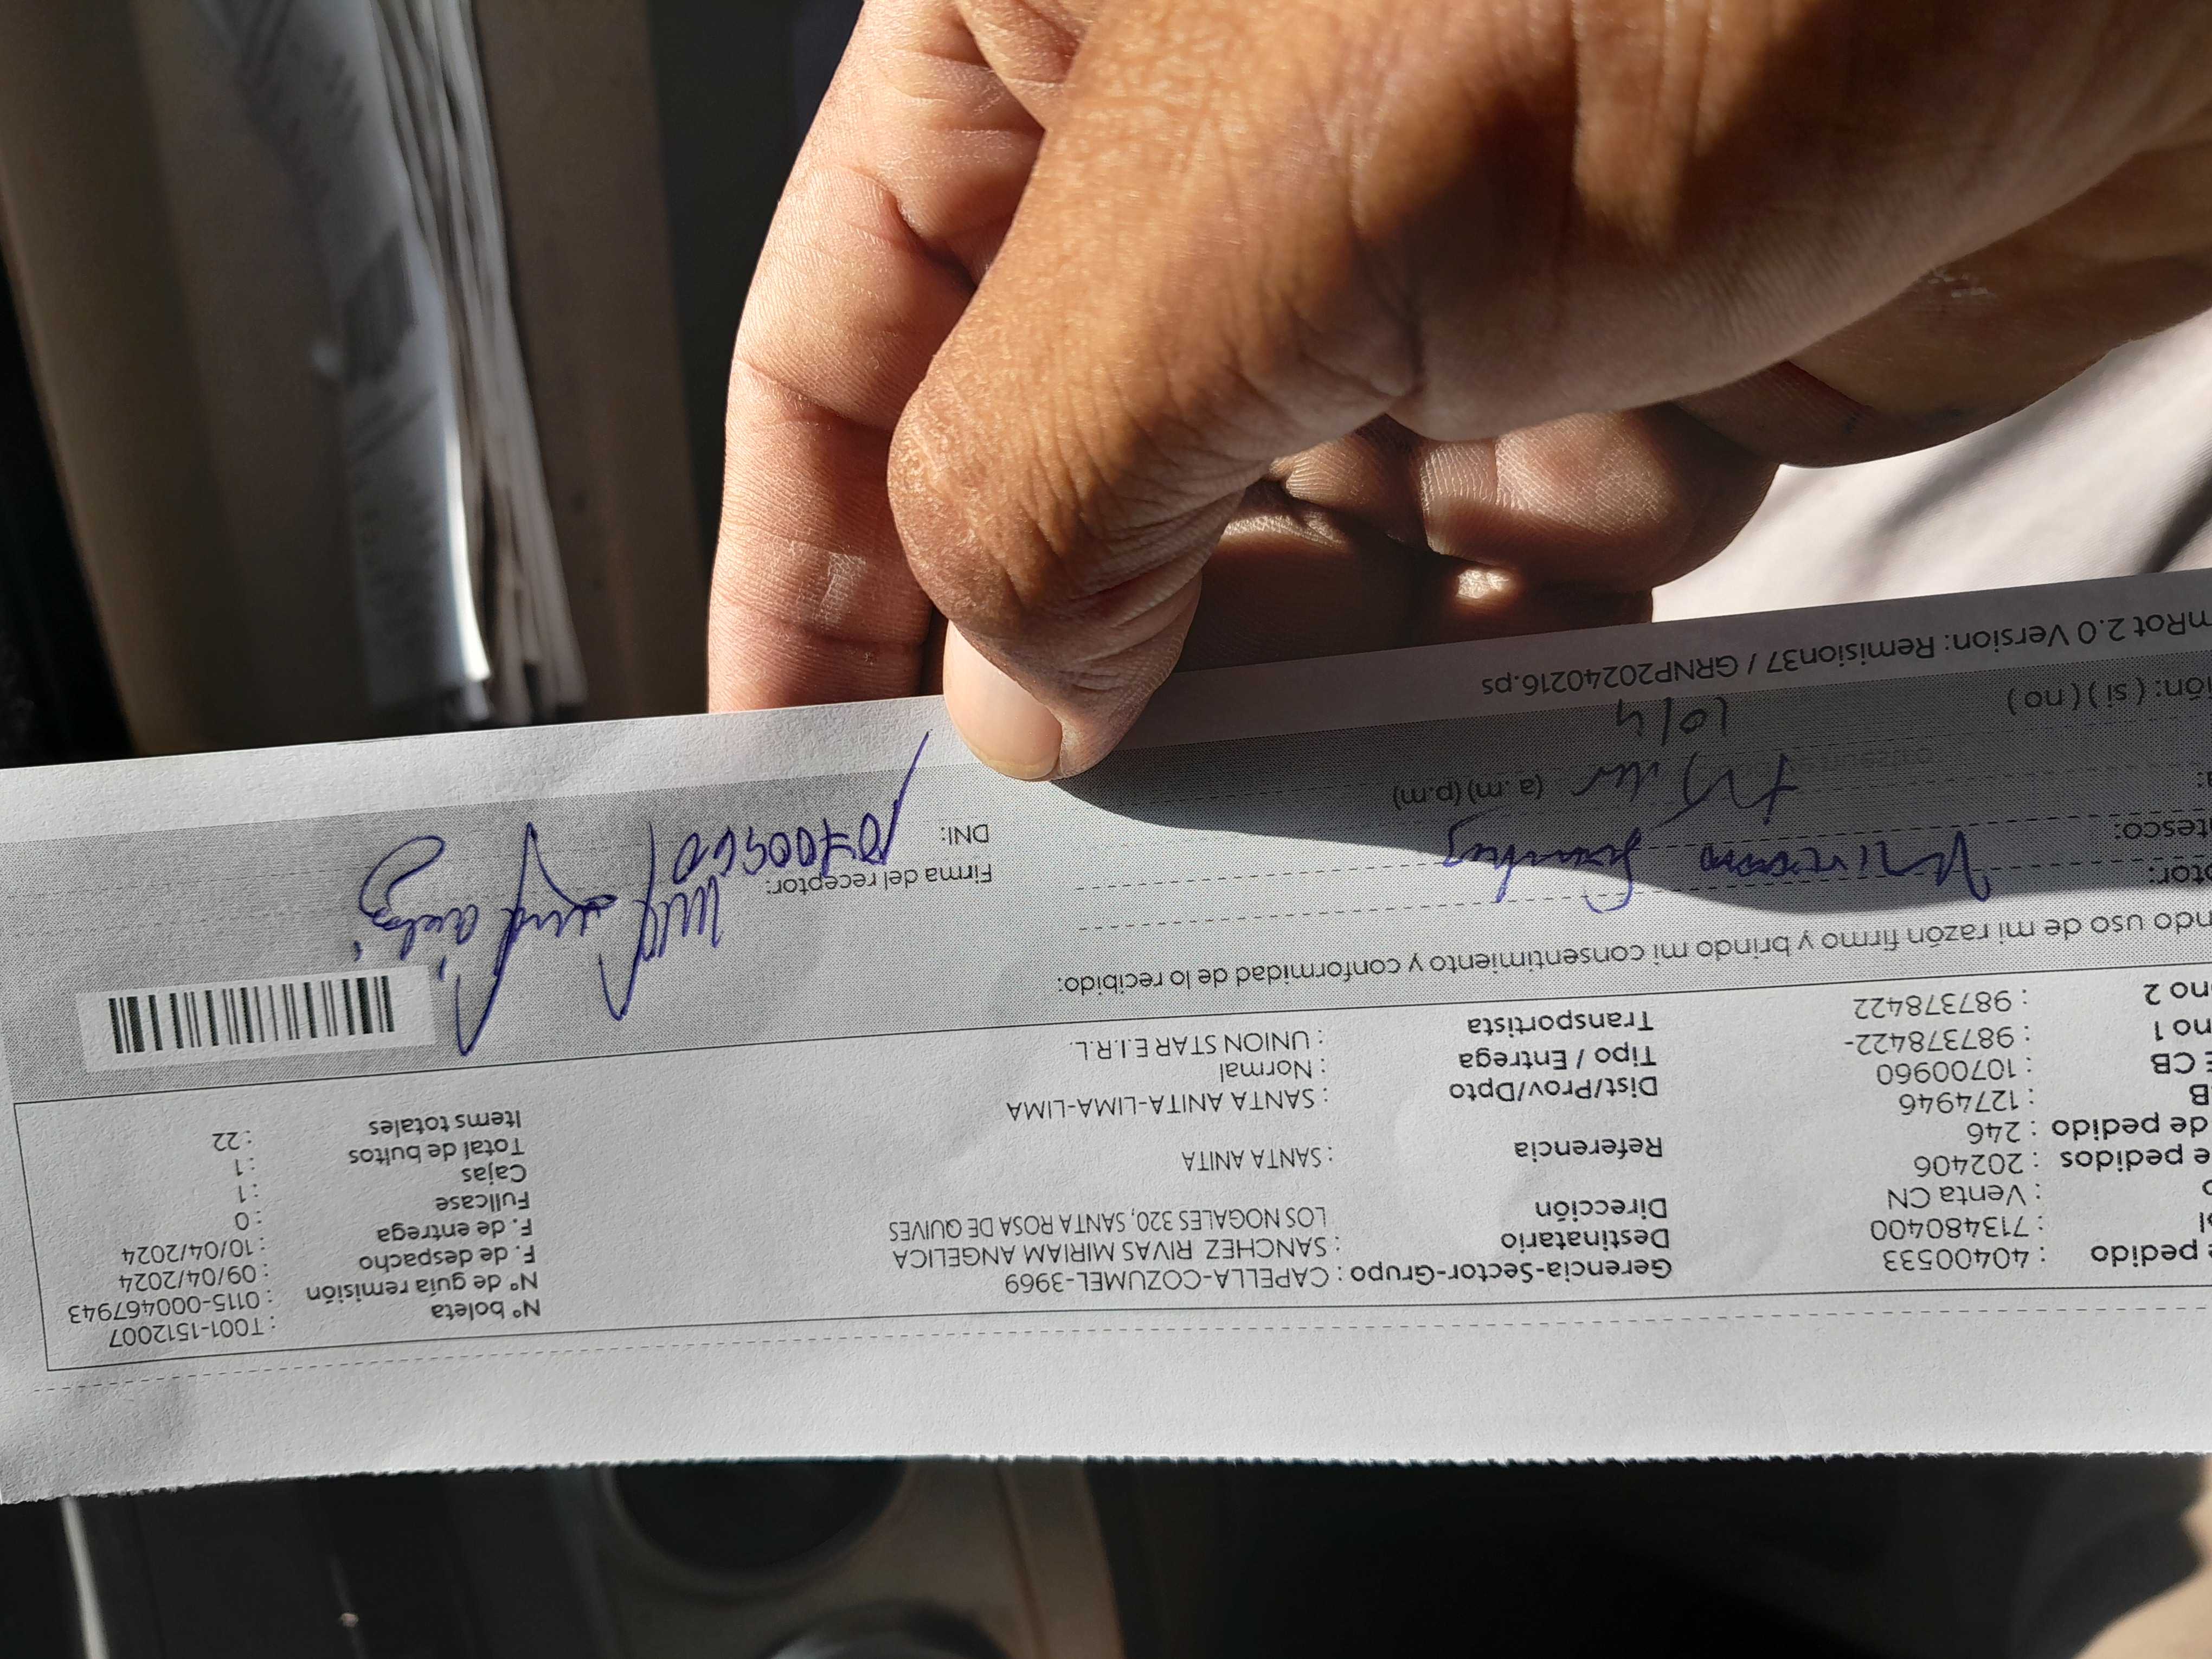 e pedido : 40400533 Gerencia-Sector-Grupo : CAPELLA-COZUMEL-3969 Nº boleta : T001-1512007
l : 713480400 Destinatario : SANCHEZ RIVAS MIRIAM ANGELICA Nº de guia remisión : 0115-000467943
o : Venta CN Dirección LOS NOGALES 320, SANTA ROSA DE QUIVES F. de despacho : 09/04/2024
e pedidos : 202406 F. de entrega : 10/04/2024
de pedido : 246 Referencia : SANTA ANITA Fullcase : 0
B : 1274946 Cajas : 1
E CB : 10700960 Dist/Prov/Dpto : SANTA ANITA-LIMA-LIMA Total de bultos : 1
no 1 : 987378422- Tipo / Entrega : Normal Items totales : 22
ono 2 : 987378422 Transportista : UNION STAR E.I.R.L.
ndo uso de mi razón firmo y brindo mi consentimiento y conformidad de lo recibido:
ptor: Firma del receptor:
tesco: DNI: 10700960
a: (a.m) (p.m)
ión: ( si ) ( no ) 10/4
mRot 2.0 Version: Remision37 / GRNP20240216.ps